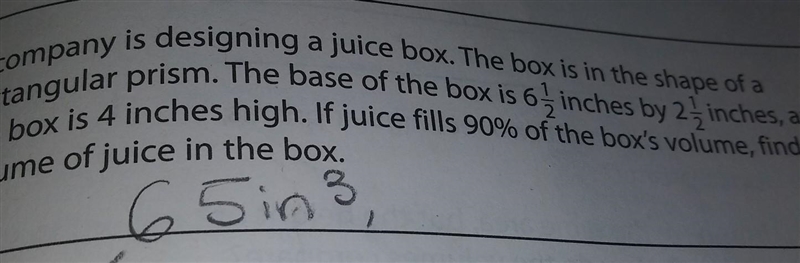 company is designing a juice box. The box is in the shape of a
tangular prism. The base of the box is 6 1/2 inches by 2 1/2 inches, a
box is 4 inches high. If juice fills 90% of the box's volume, find
ume of juice in the box.
65in³,